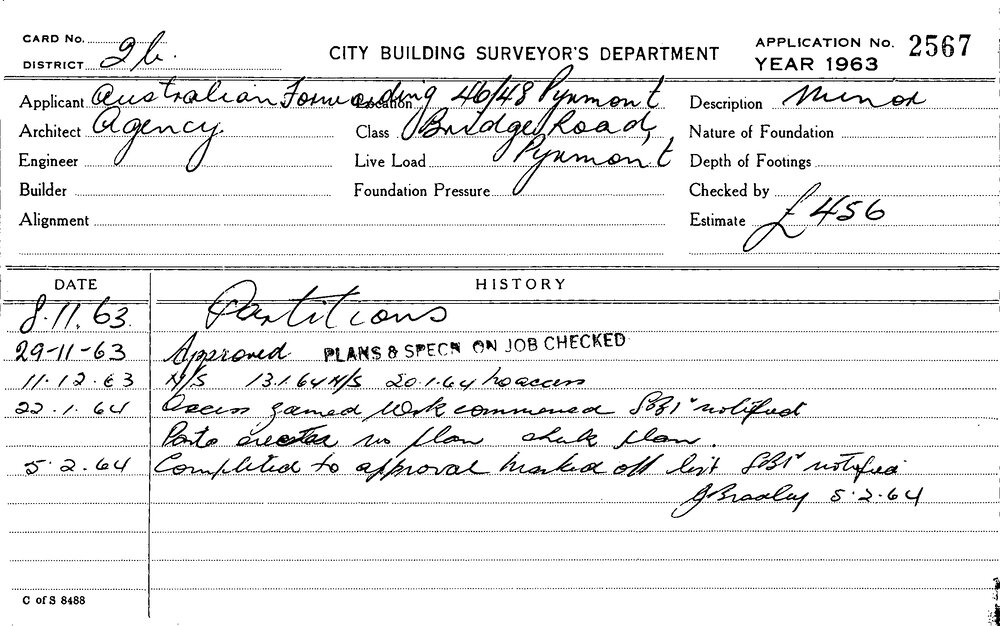 CARD No.
DISTRICT 2b.
CITY BUILDING SURVEYOR'S DEPARTMENT
APPLICATION No. 2567
YEAR 1963
Applicant Australian Forwarding Agency.
Location 46/48 Pyrmont Bridge Road, Pyrmont
Description Minor
Architect
Class
Nature of Foundation
Engineer
Live Load
Depth of Footings
Builder
Foundation Pressure
Checked by
Alignment
Estimate £456
DATE HISTORY
8.11.63 Partitions
29-11-63 Approved PLANS & SPECN ON JOB CHECKED
11.12.63 N/S 13.1.64 N/S 20.1.64 no access
22.1.64 Access gained work commenced notified
erected no plan plan.
5.2.64 Completed to approval marked off list notified
J Bradley 5.2.64
C of S 8488